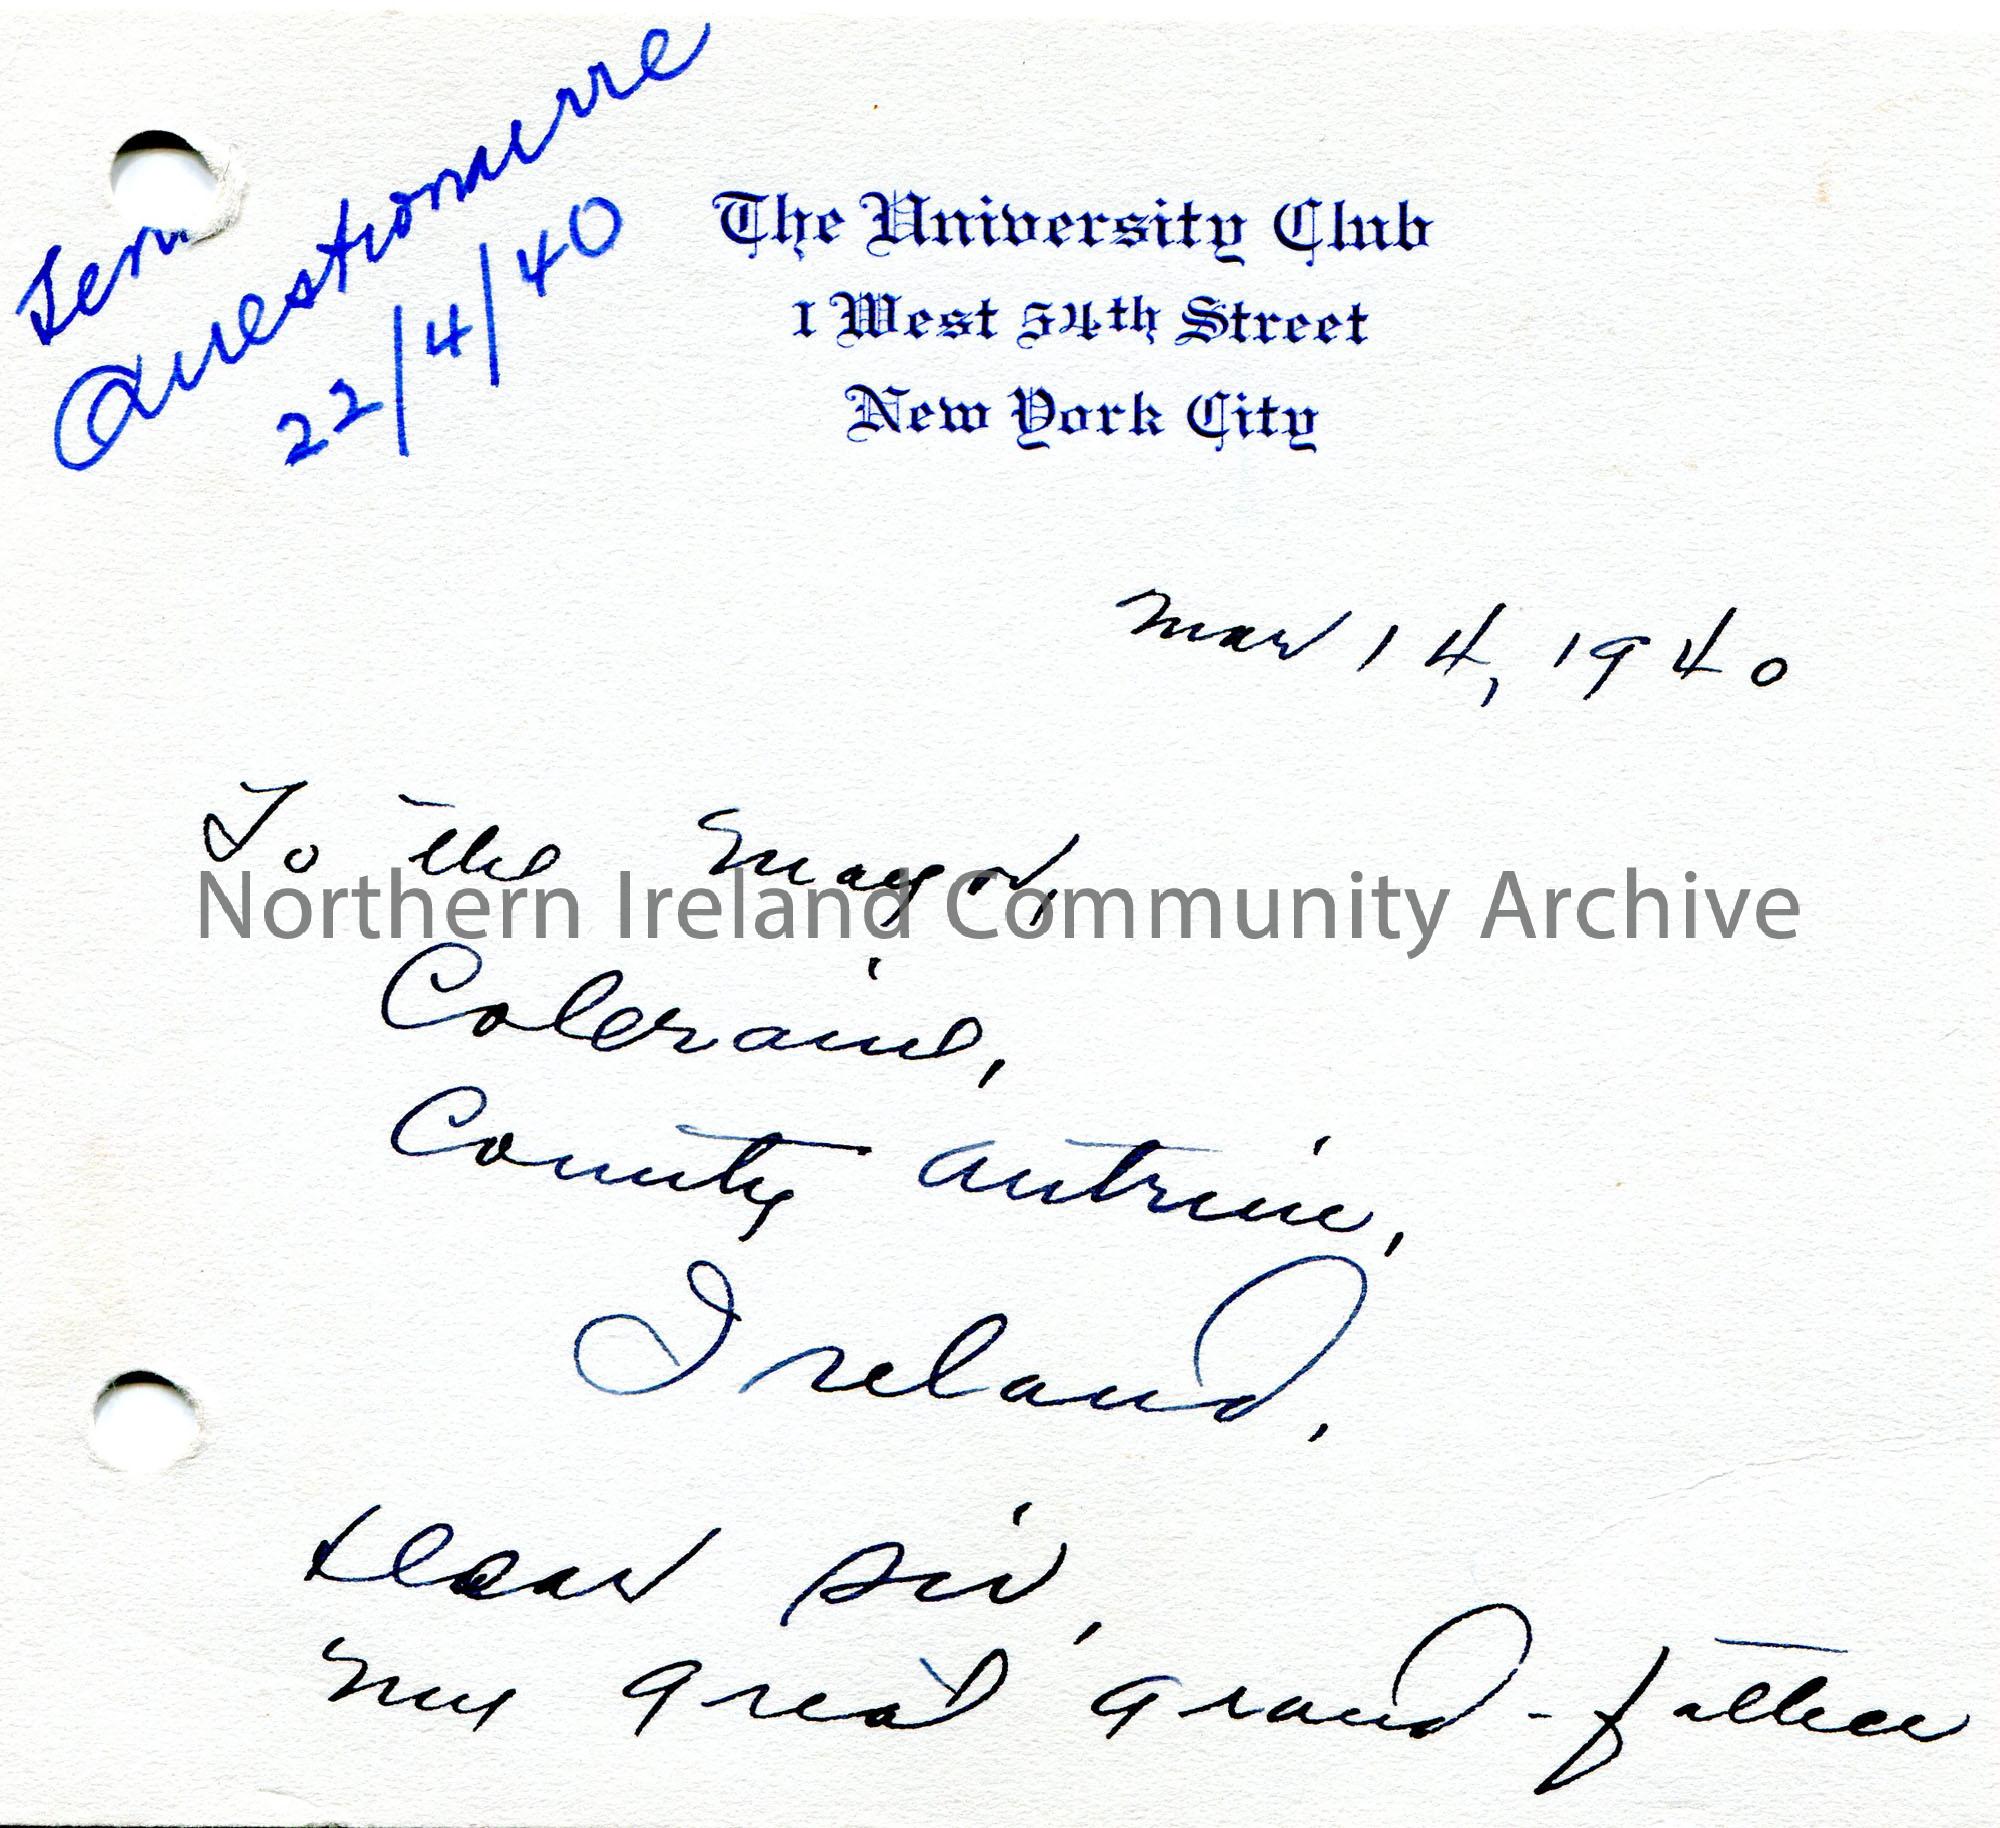 Sen
Questionnaire
22/4/40
The University Club
1 West 54th Street
New York City
Mar 14, 1940
To the Mayor,
Northern Ireland Community Archive
Coleraine,
County Antrim,
Ireland.
Dear Sir,
My great grand-father